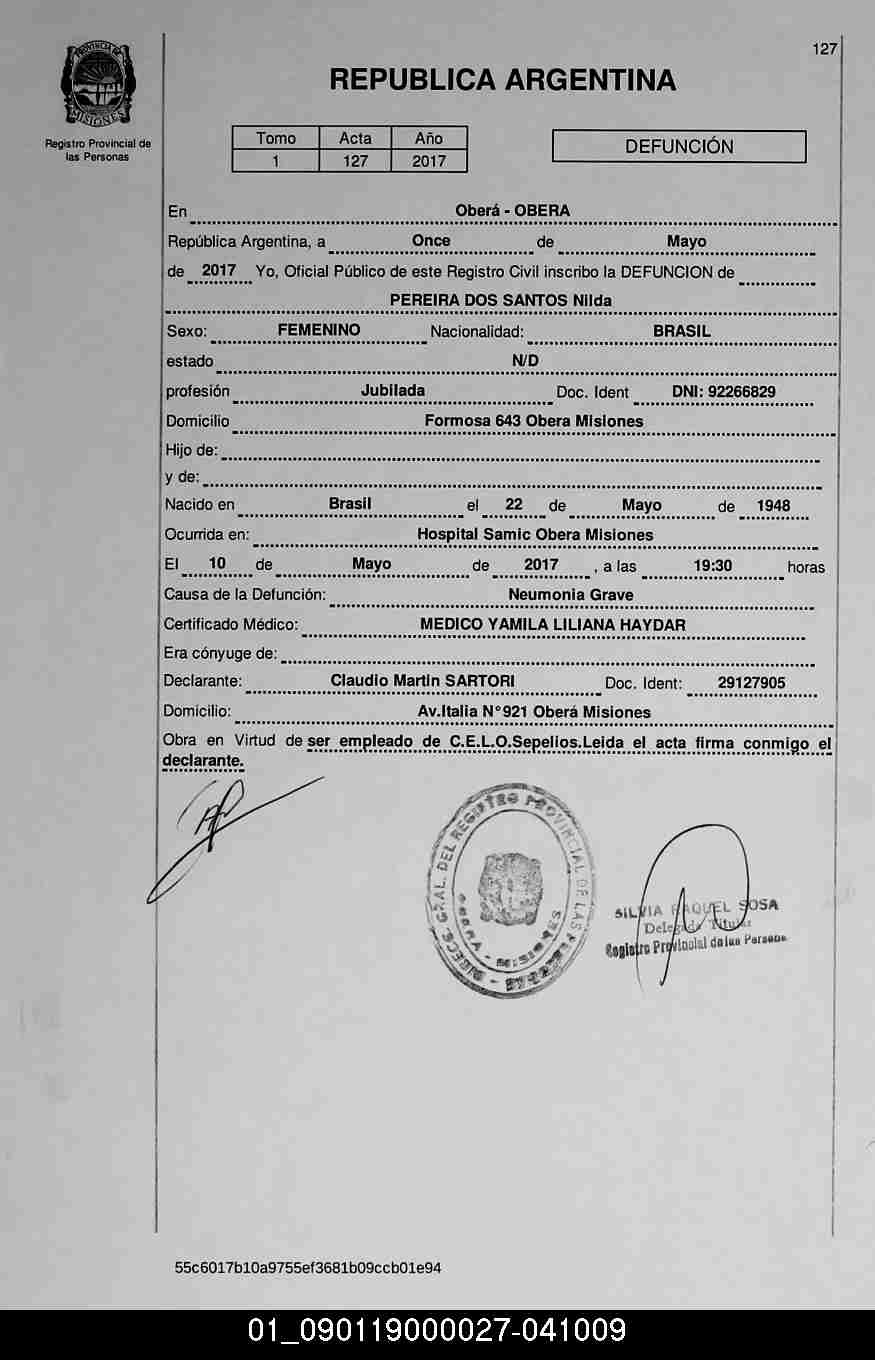 127
PROVINCIA DE
MISIONES
Registro Provincial de
las Personas
REPUBLICA ARGENTINA
Tomo Acta Año
1 127 2017
DEFUNCIÓN
En Oberá - OBERA
República Argentina, a Once de Mayo
de 2017 Yo, Oficial Público de este Registro Civil inscribo la DEFUNCION de
PEREIRA DOS SANTOS Nilda
Sexo: FEMENINO Nacionalidad: BRASIL
estado N/D
profesión Jubilada Doc. Ident DNI: 92266829
Domicilio Formosa 643 Obera Misiones
Hijo de:
y de:
Nacido en Brasil el 22 de Mayo de 1948
Ocurrida en: Hospital Samic Obera Misiones
El 10 de Mayo de 2017 , a las 19:30 horas
Causa de la Defunción: Neumonia Grave
Certificado Médico: MEDICO YAMILA LILIANA HAYDAR
Era cónyuge de:
Declarante: Claudio Martin SARTORI Doc. Ident: 29127905
Domicilio: Av.Italia N°921 Oberá Misiones
Obra en Virtud de ser empleado de C.E.L.O.Sepelios.Leida el acta firma conmigo el
declarante.
DIRECC. GRAL. DEL REGISTRO PROVINCIAL DE LAS PERSONAS
SILVIA RAQUEL SOSA
Delegada Titular
Registro Provincial de las Personas
55c6017b10a9755ef3681b09ccb01e94
01_090119000027-041009